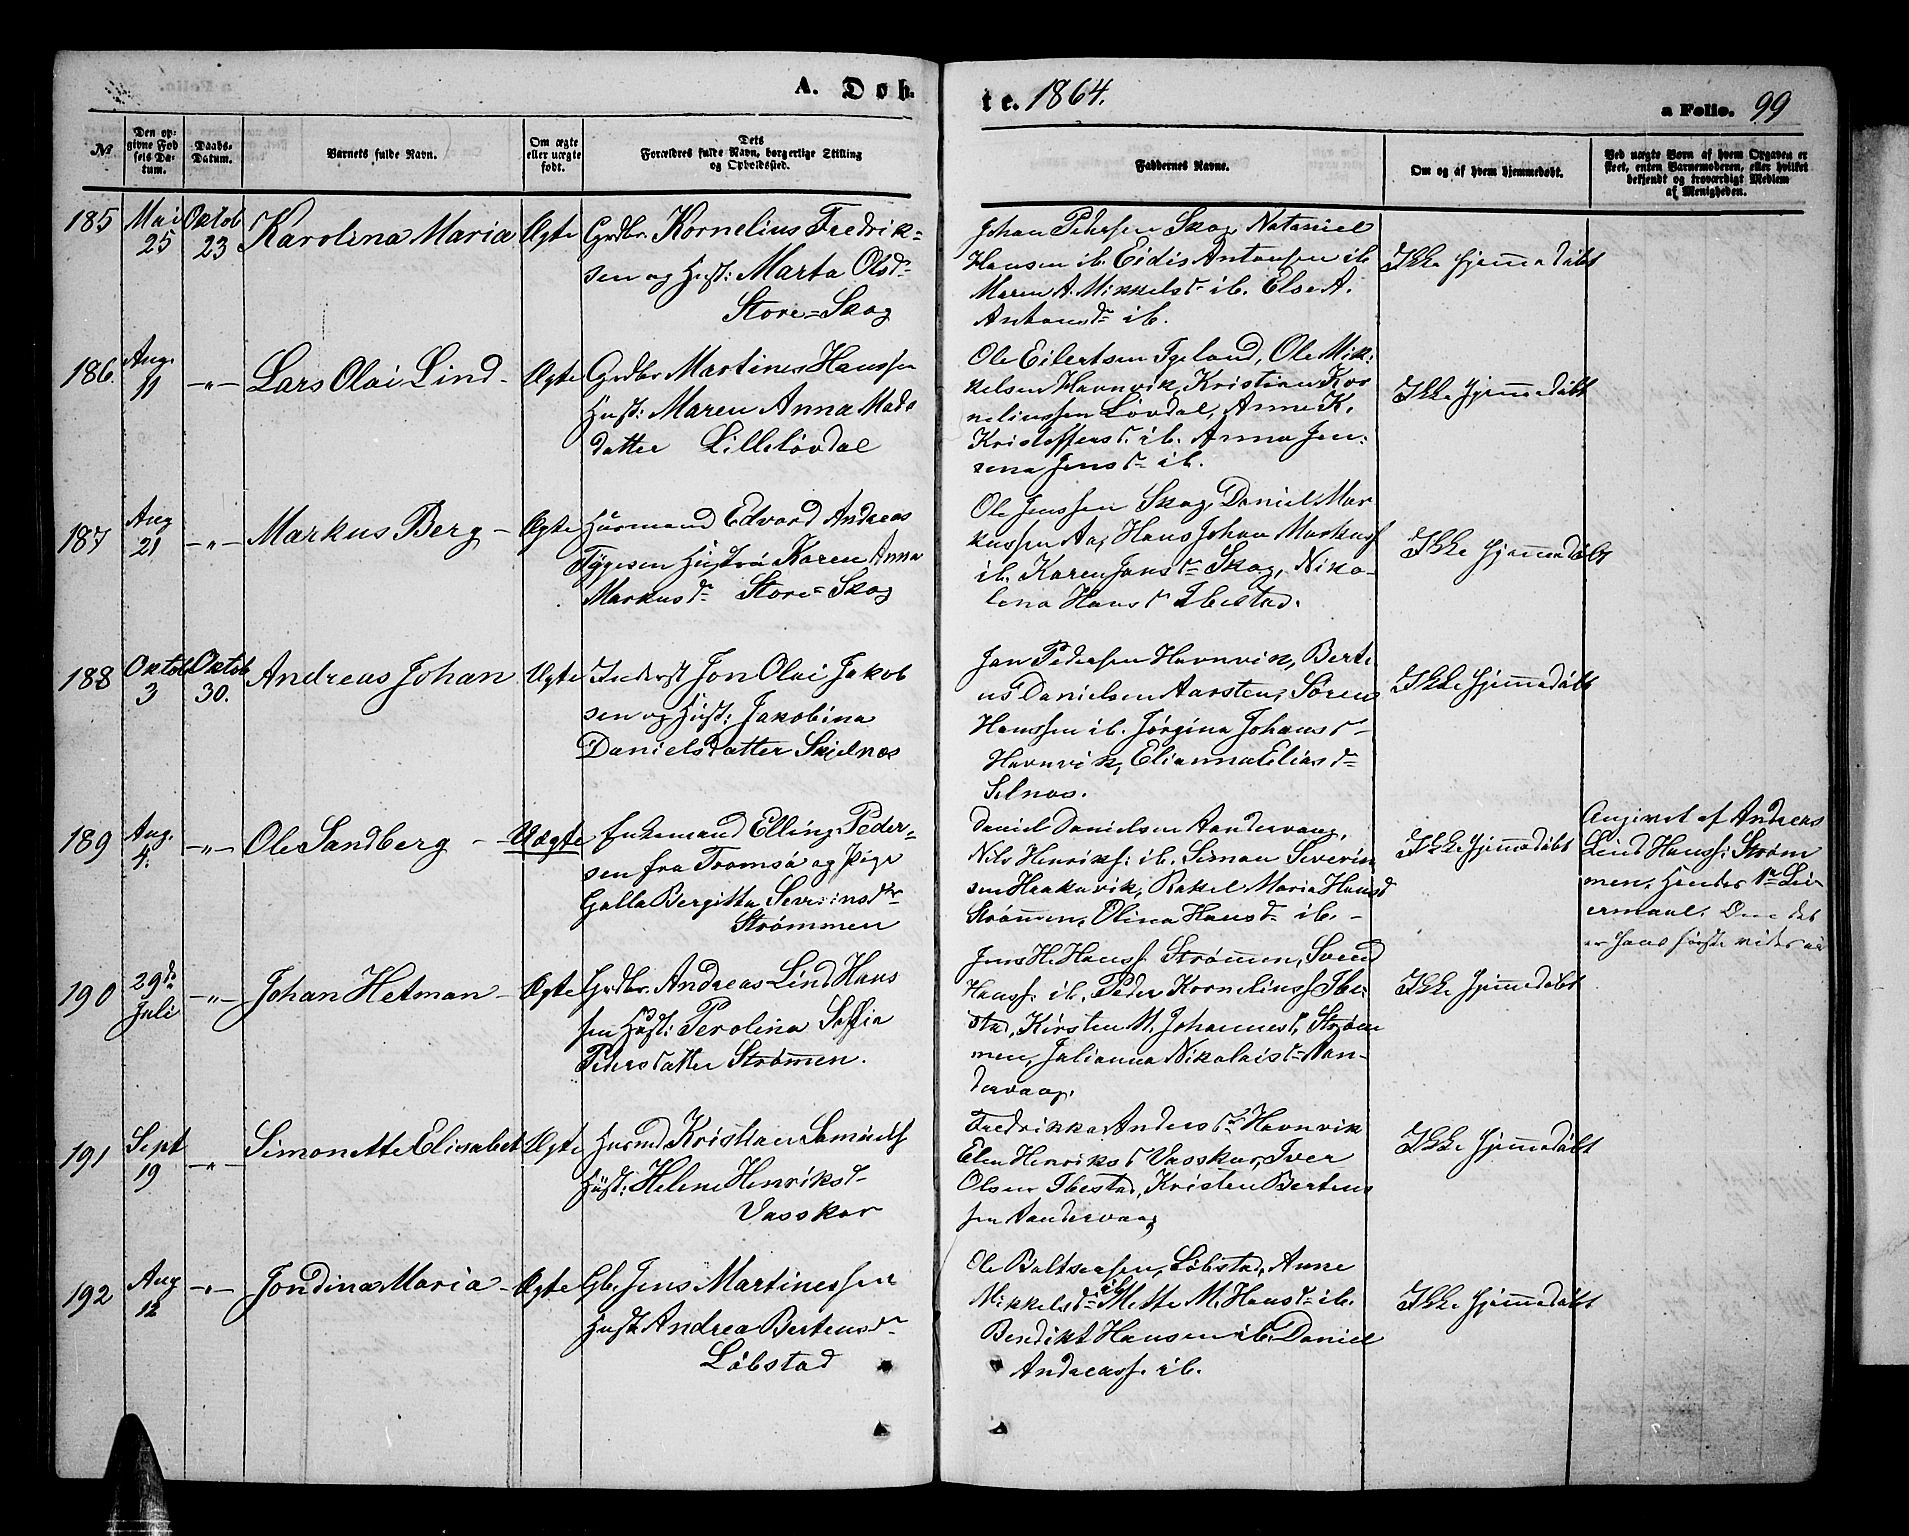 A. Døb-
te. 1864.
a Folio. 99
№
Den opgivne Fødsels Datum.
Daabs-Datum.
Barnets fulde Navn.
Om ægte eller uægte født.
Dets Forældres fulde Navn, borgerlige Stilling og Opholdssted.
Faddernes Navne.
Om og af hvem hjemmedøbt.
Ved uægte Børn af hvem Opgaven er skeet, enten Barnemoderen, eller hvilket bekjendt og troværdigt Medlem af Menigheden.
185
Mai 25
Oktob 23
Karolina Maria
Ægte
Grdbr. Kornelius Fredrik=
sen og Hust: Marta Olsdr
Store=Skog
Johan Pedersen Skog, Nataniel
Hansen ib. Eidis Antonsen ib
Maren A. Mikkelsdr ib. Else A.
Antonsdr ib.
Ikke hjemmedøbt
186.
Aug. 11
-"-
Lars Olai Lind-
Ægte
Grdbr Martines Hanssen
Hust: Maren Anna Mads
datter Lilleløvdal
Ole Eilertsen Igeland, Ole Mik:
kelsen Havnvik, Kristian Kor
neliussen Løvdal, Anne K.
Kristoffersd. ib. Anna Jen:
sena Jensdr ib.
Ikke hjemmedøbt
187
Aug 21
-"-
Markus Berg -
Ægte
Husmand Edvard Andreas
Tygesen Hustru Karen Anna
Markusdr Store=Skog
Ole Jenssen Skog, Daniel Mar
kussen Aa, Hans Johan Markuss
ib. Karen Jonsdr Skog, Niko-
lena Hansd Ibestad.
Ikke hjemmedøbt
188
Oktob 3
Oktob 30.
Andreas Johan
Ægte
Inderst Jon Olai Jakob
sen og Hust: Jakobina
Danielsdatter Skjelnes
Jan Pedersen Havnvik, Bert
us Danielsen Aarsten, Søren
Hanssen ib. Jørgina Johansd-
Havnvik, Elianna Eliasdr
Selnes.
Ikke hjemmedøbt
189
Aug. 4.
-"-
Ole Sandberg -
Uægte
Enkemand Elling Peder=
sen fra Tromsø og Pige
Galla Bergitta Severinsdtr
Strømmen
Daniel Danielsen Aandervaag,
Nils Henriks: ib. Simon Severin
sen Haakavik, Rakel Maria Hansd
Strømmen, Olina Hansdr ib. -
Ikke hjemmedøbt
Angivet af Andreas
Lind Hanss: Strøm
men. Hendes 1ste Lei
ermaal.
190
29de Juli
-"-
Johan Hetman -
Ægte
Grdbr. Andreas Lind Hans
sen Hust: Perolina Soffia
Pedersdatter Strømmen.
Jens H. Hanss. Strømmen, Svend
Hanss. ib. Peder Korneliuss Ibe-
stad, Kirsten M. Johannesd. Strøm
men, Julianna Nikolaisdr Aan-
dervaag.
Ikke hjemmedøbt
191
Sept 19
-"-
Simonette Elisabet
Ægte
Husmd Kristian Samuels
Hust: Helene Henriksd-
Vasskar
Fredrikka Andersdr Havnvik
Elen Henriksd Vasskar, Iver
Olsen Ibestad, Kristen Bertens
sen Aandervaag
Ikke hjemmedøbt
192
Aug 12
-"-
Jondina Maria -
Ægte
Gbr. Jens Martinessen
Hust Andrea Bertensdr
Løbstad
Ole Baltsersen, Løbstad, Anne
Mikkelsdr ib Mette M. Hansdr ib.
Bendikt Hansen ib. Daniel
Andreass. ib.
Ikke hjemmedøbt